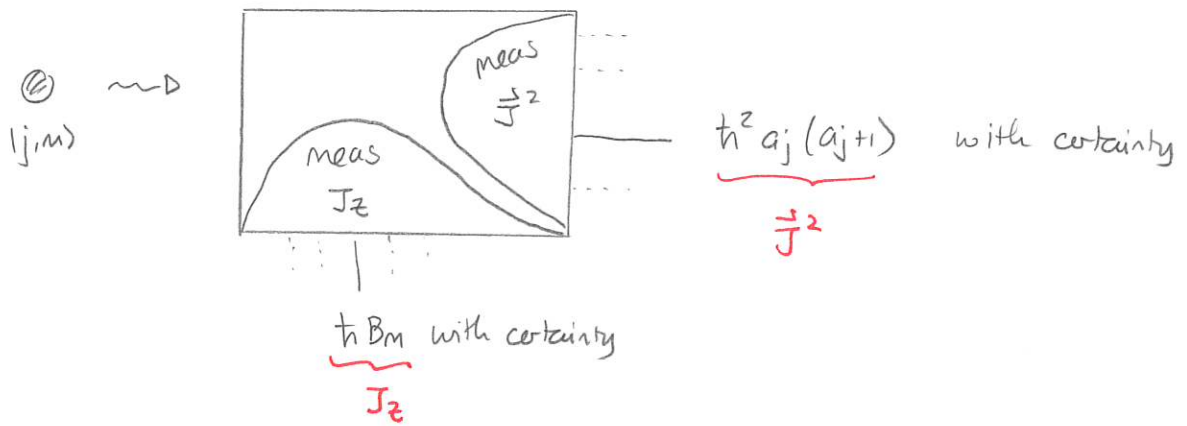 meas
J⃗²
|j,m⟩
meas
J_z
ħ² a_j (a_j+1) with certainty
J⃗²
ħ B_m with certainty
J_z